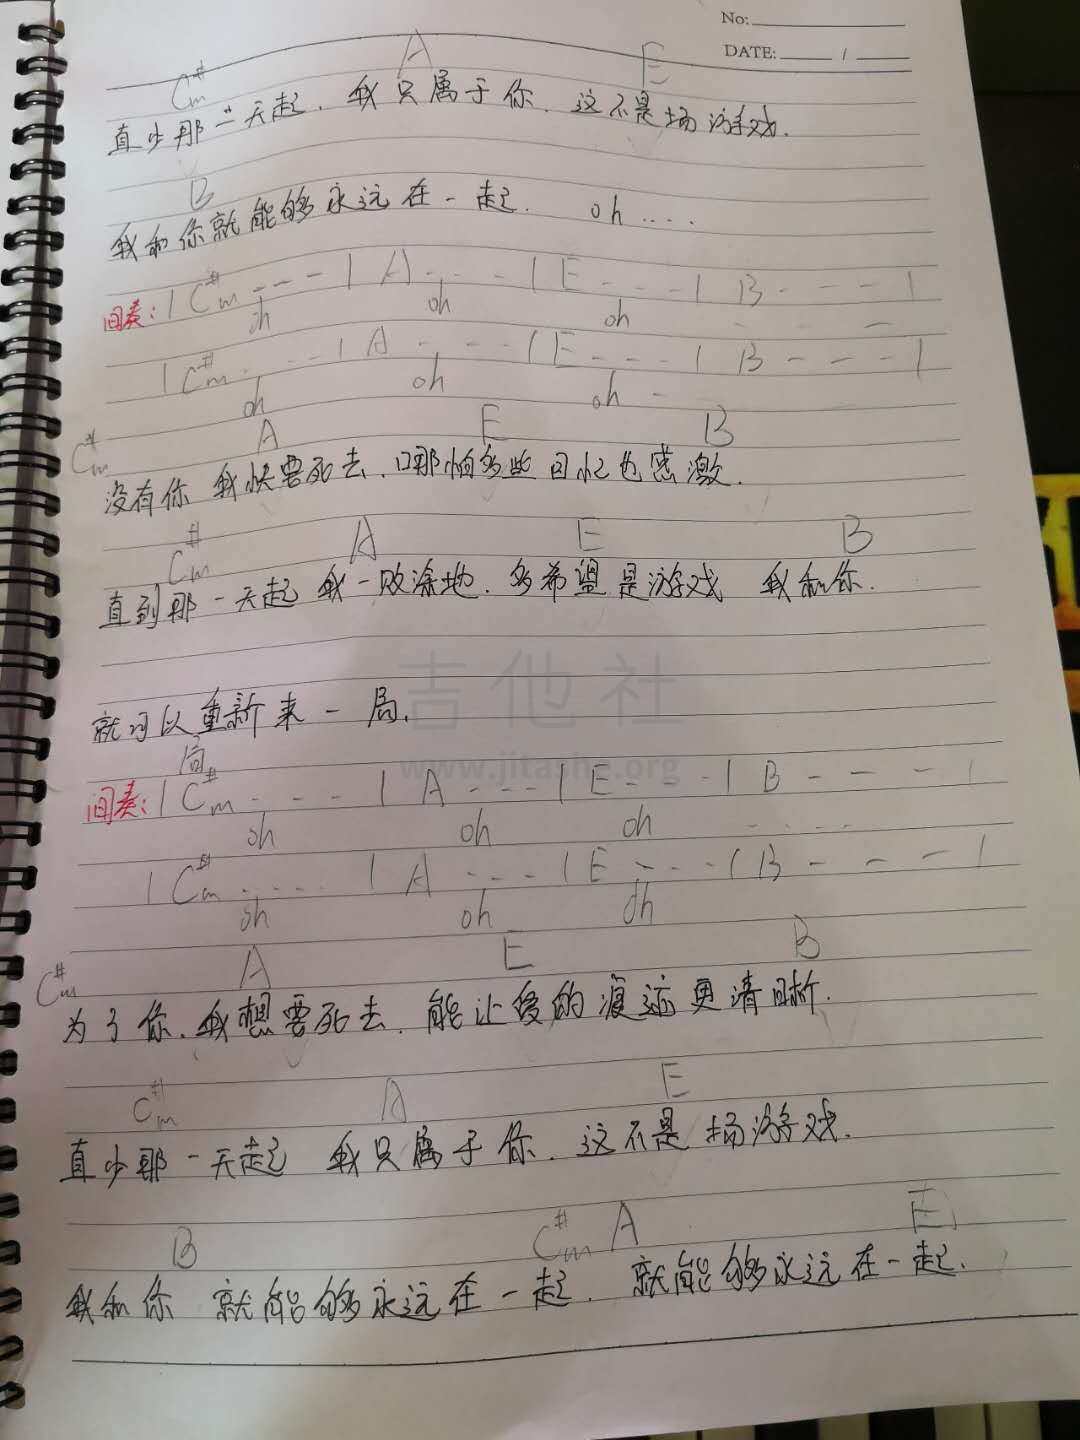 No:
DATE: /
C#m A E
直少那一天起.我只属于你.这不是场游戏.
B
我和你就能够永远在一起. oh ....
间奏: | C#m --- | A --- | E --- | B --- |
oh oh oh
| C#m --- | A --- | E --- | B --- |
oh oh oh
C#m A E B
没有你 我快要死去.哪怕多些回忆也感激.
C#m A E B
直到那一天起 我一败涂地.多希望是游戏 我和你.
吉他社
就可以重新来一局.
www.jitashe.org
局
间奏: | C#m --- | A --- | E --- | B --- |
oh oh oh
| C#m .... | A --- | E --- | B --- |
oh oh oh
C#m A E B
为了你.我想要死去.能让爱的痕迹更清晰.
C#m A E
直少那一天起 我只属于你.这不是场游戏.
B C#m A E
我和你 就能够永远在一起. 就能够永远在一起.